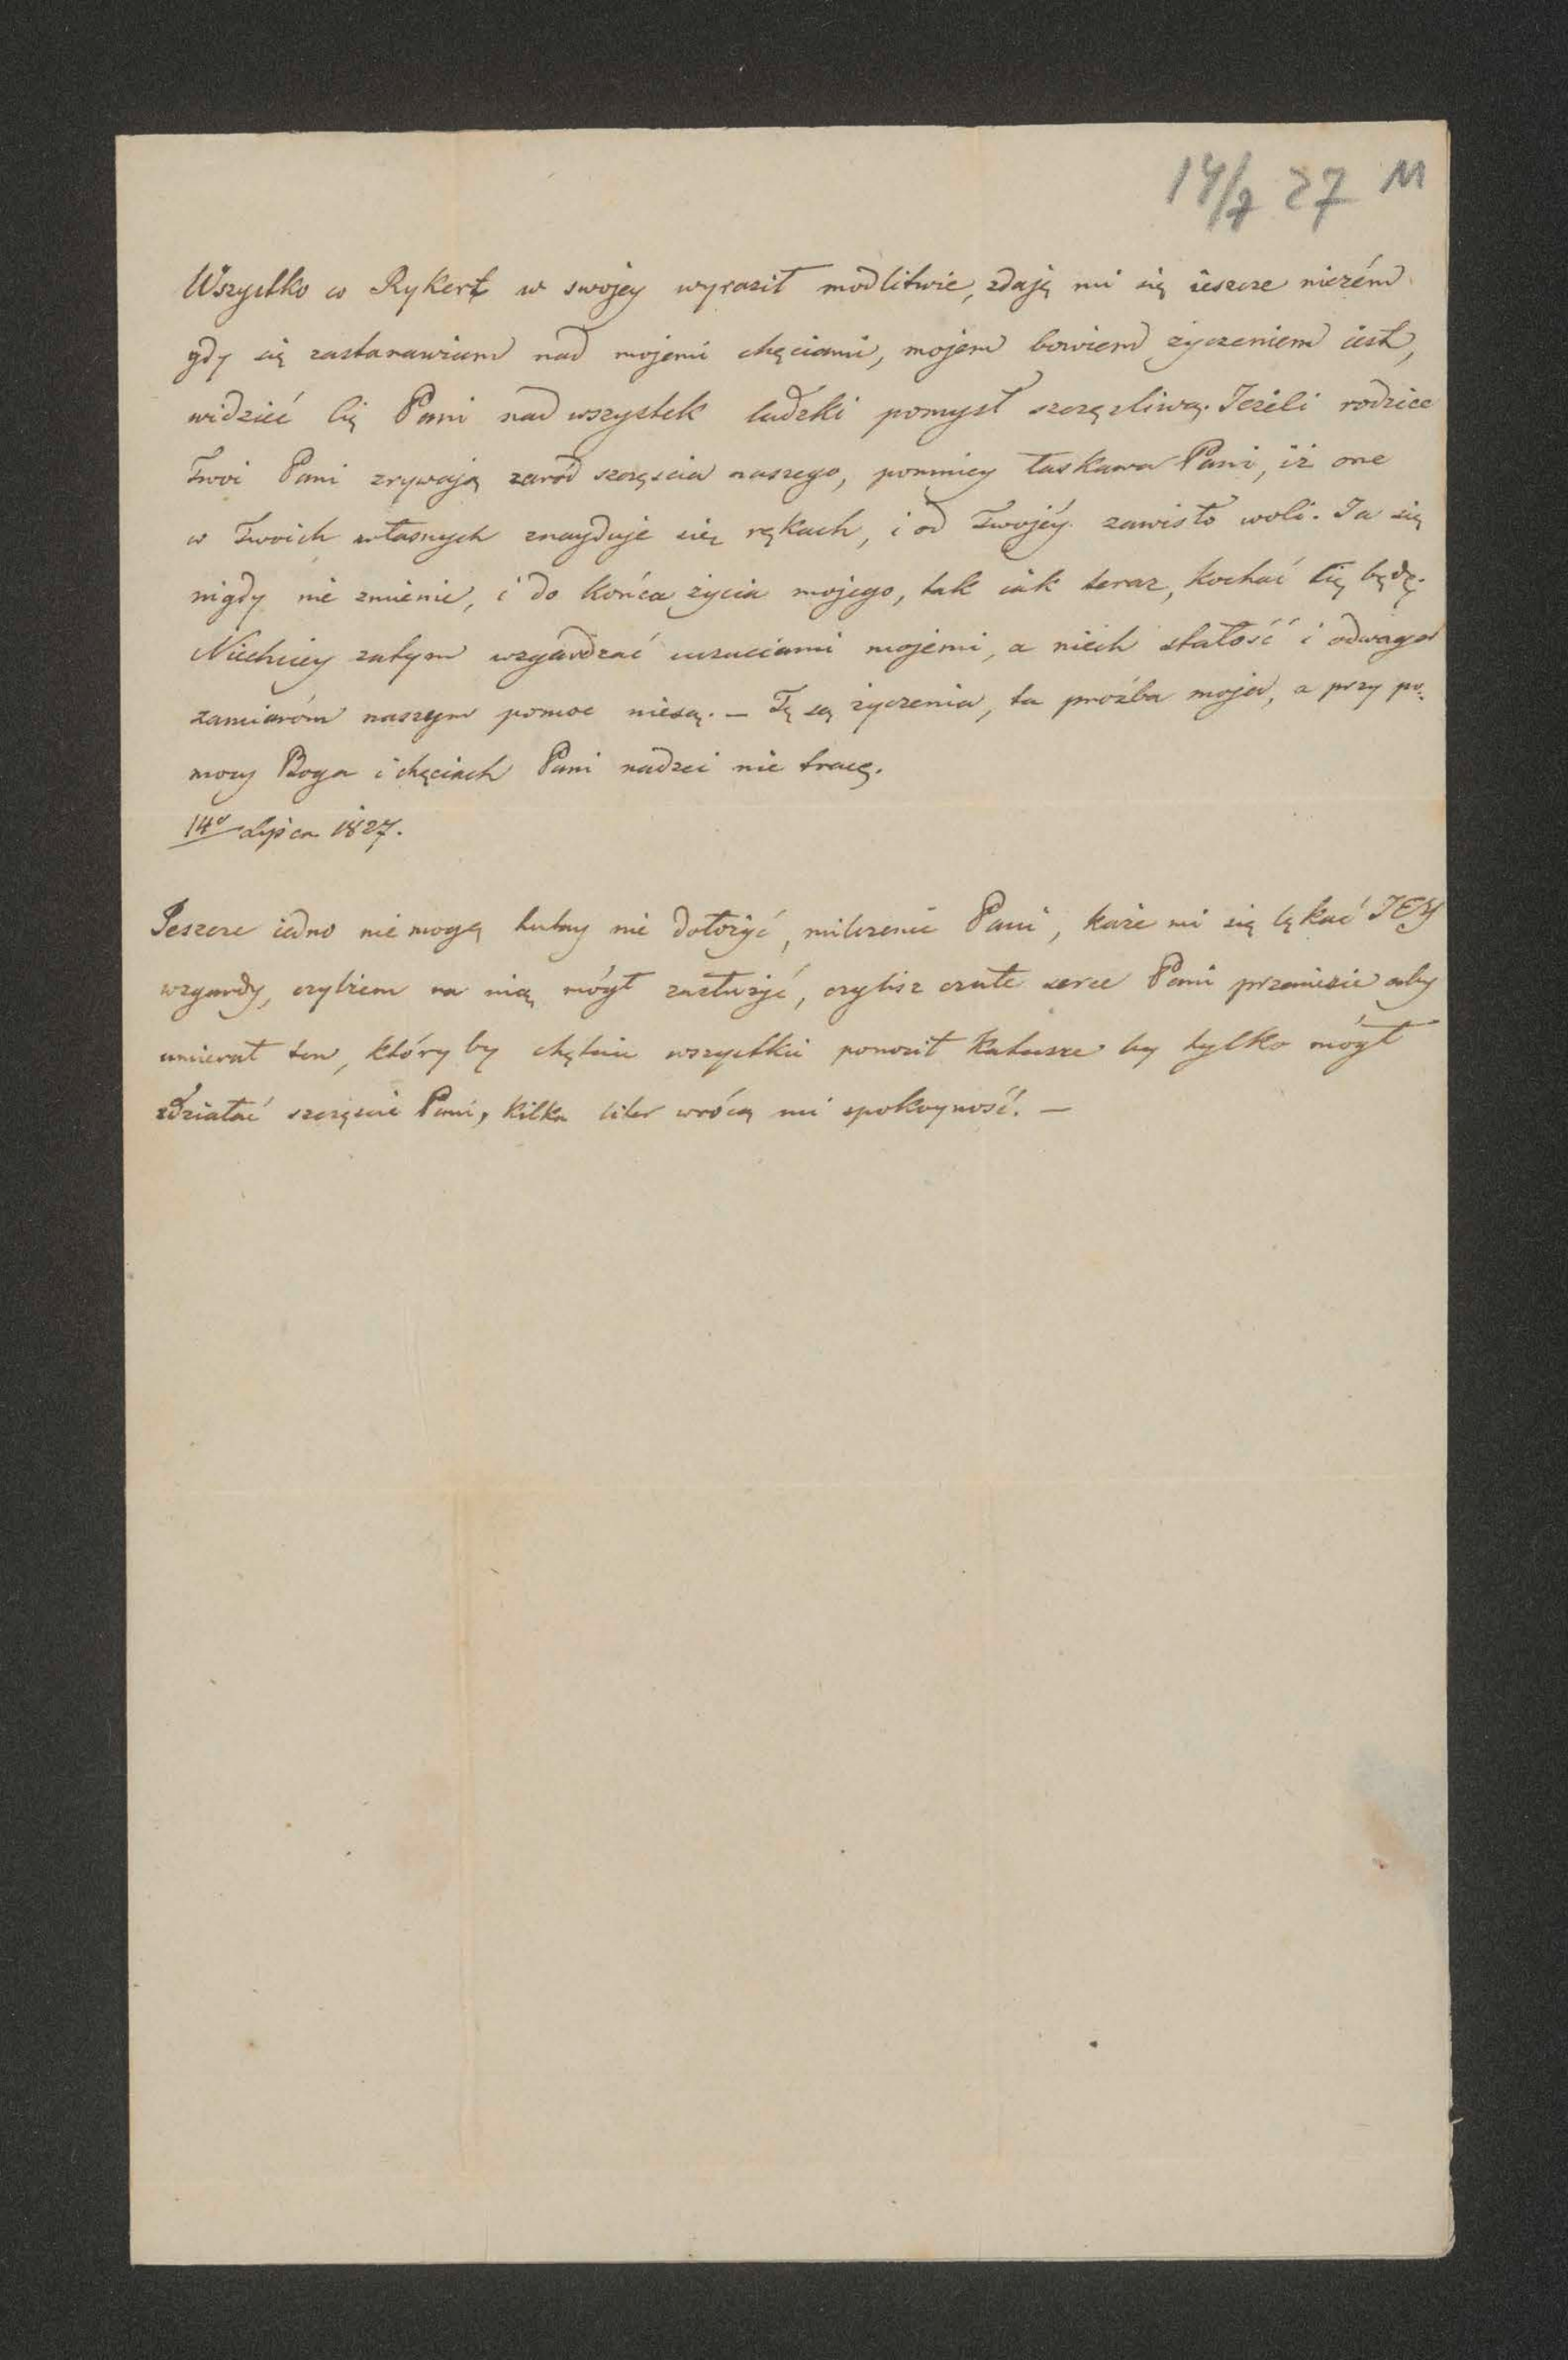 14/7 27 M
Wszystko co Rykert w swojey wyraził modlitwie, zdają mi się ieszcze niczém
gdy się zastanawiam nad mojemi chęciami, mojem bowiem życzeniem iest,
widzieć Cię Pani nad wszystek ludzki pomysł szczęzliwą. Ieżeli rodzice
Twoi Pani zrywają zaród szczęscia naszego, pomniey łaskawa Pani, iż one
w Twoich własnych znayduje się rękach, i od Twojéy zawisło woli. Ia się
nigdy nie zmienie, i do końca życia mojego, tak iak teraz, kochać Cię będę.
Niechciey zatym wzgardzać uczuciami mojemi, a niech stałość i odwaga
zamiaróm naszym pomoc niesą. — Tę są życzenia, ta proźba moja, a przy po-
mocy Boga i chęciach Pani nadzei nie tracę.
14º Lipca 1827.
Jeszcze iedno nie mogę tutay nie dołożyć, milczenie Pani, każe mi się lękać IEY
wzgardy, czyliem na nią mógł zasłużyć, czylisz czułe serce Pani przeniesie aby
umierał ten, który by chętnie wszystkie ponosił katusze by tylko mógł
zdziałać szczęscie Pani, kilka liter wrócą mi spokoyność. —